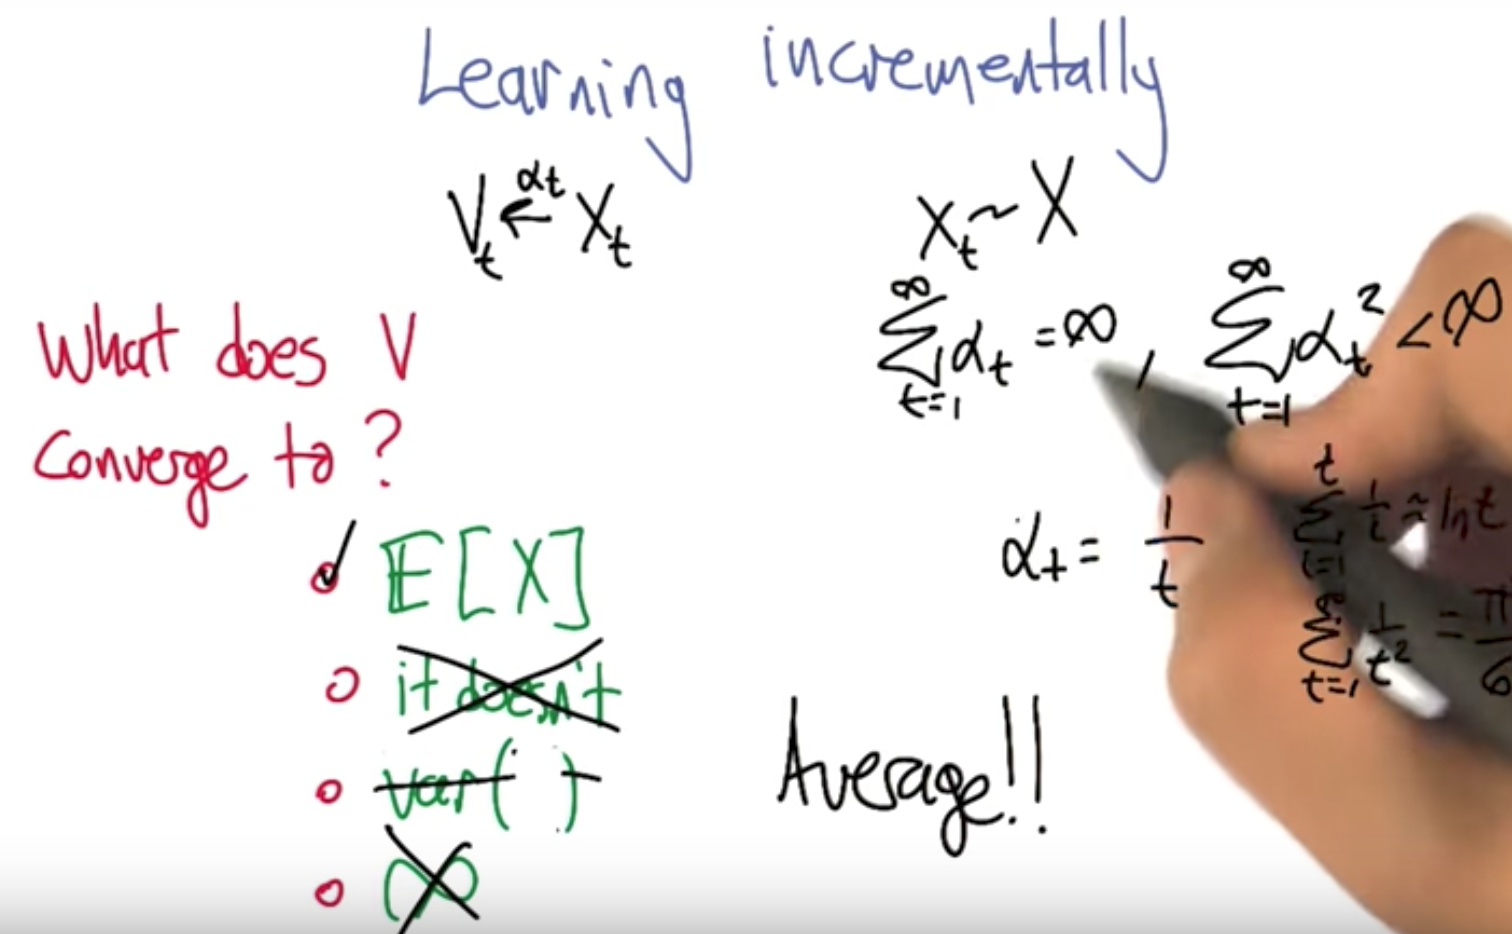 Learning incrementally
V_t ←^{α_t} X_t
x_t ~ X
∑_{t=1}^{∞} α_t = ∞, ∑_{t=1}^{∞} α_t^2 < ∞
What does V
converge to?
E[X]
it doesn't
var( )
∞
α_t = 1/t
∑_{i=1}^{t} 1/i ≈ ln t
∑_{t=1}^{∞} 1/t^2 = π/6
Average!!